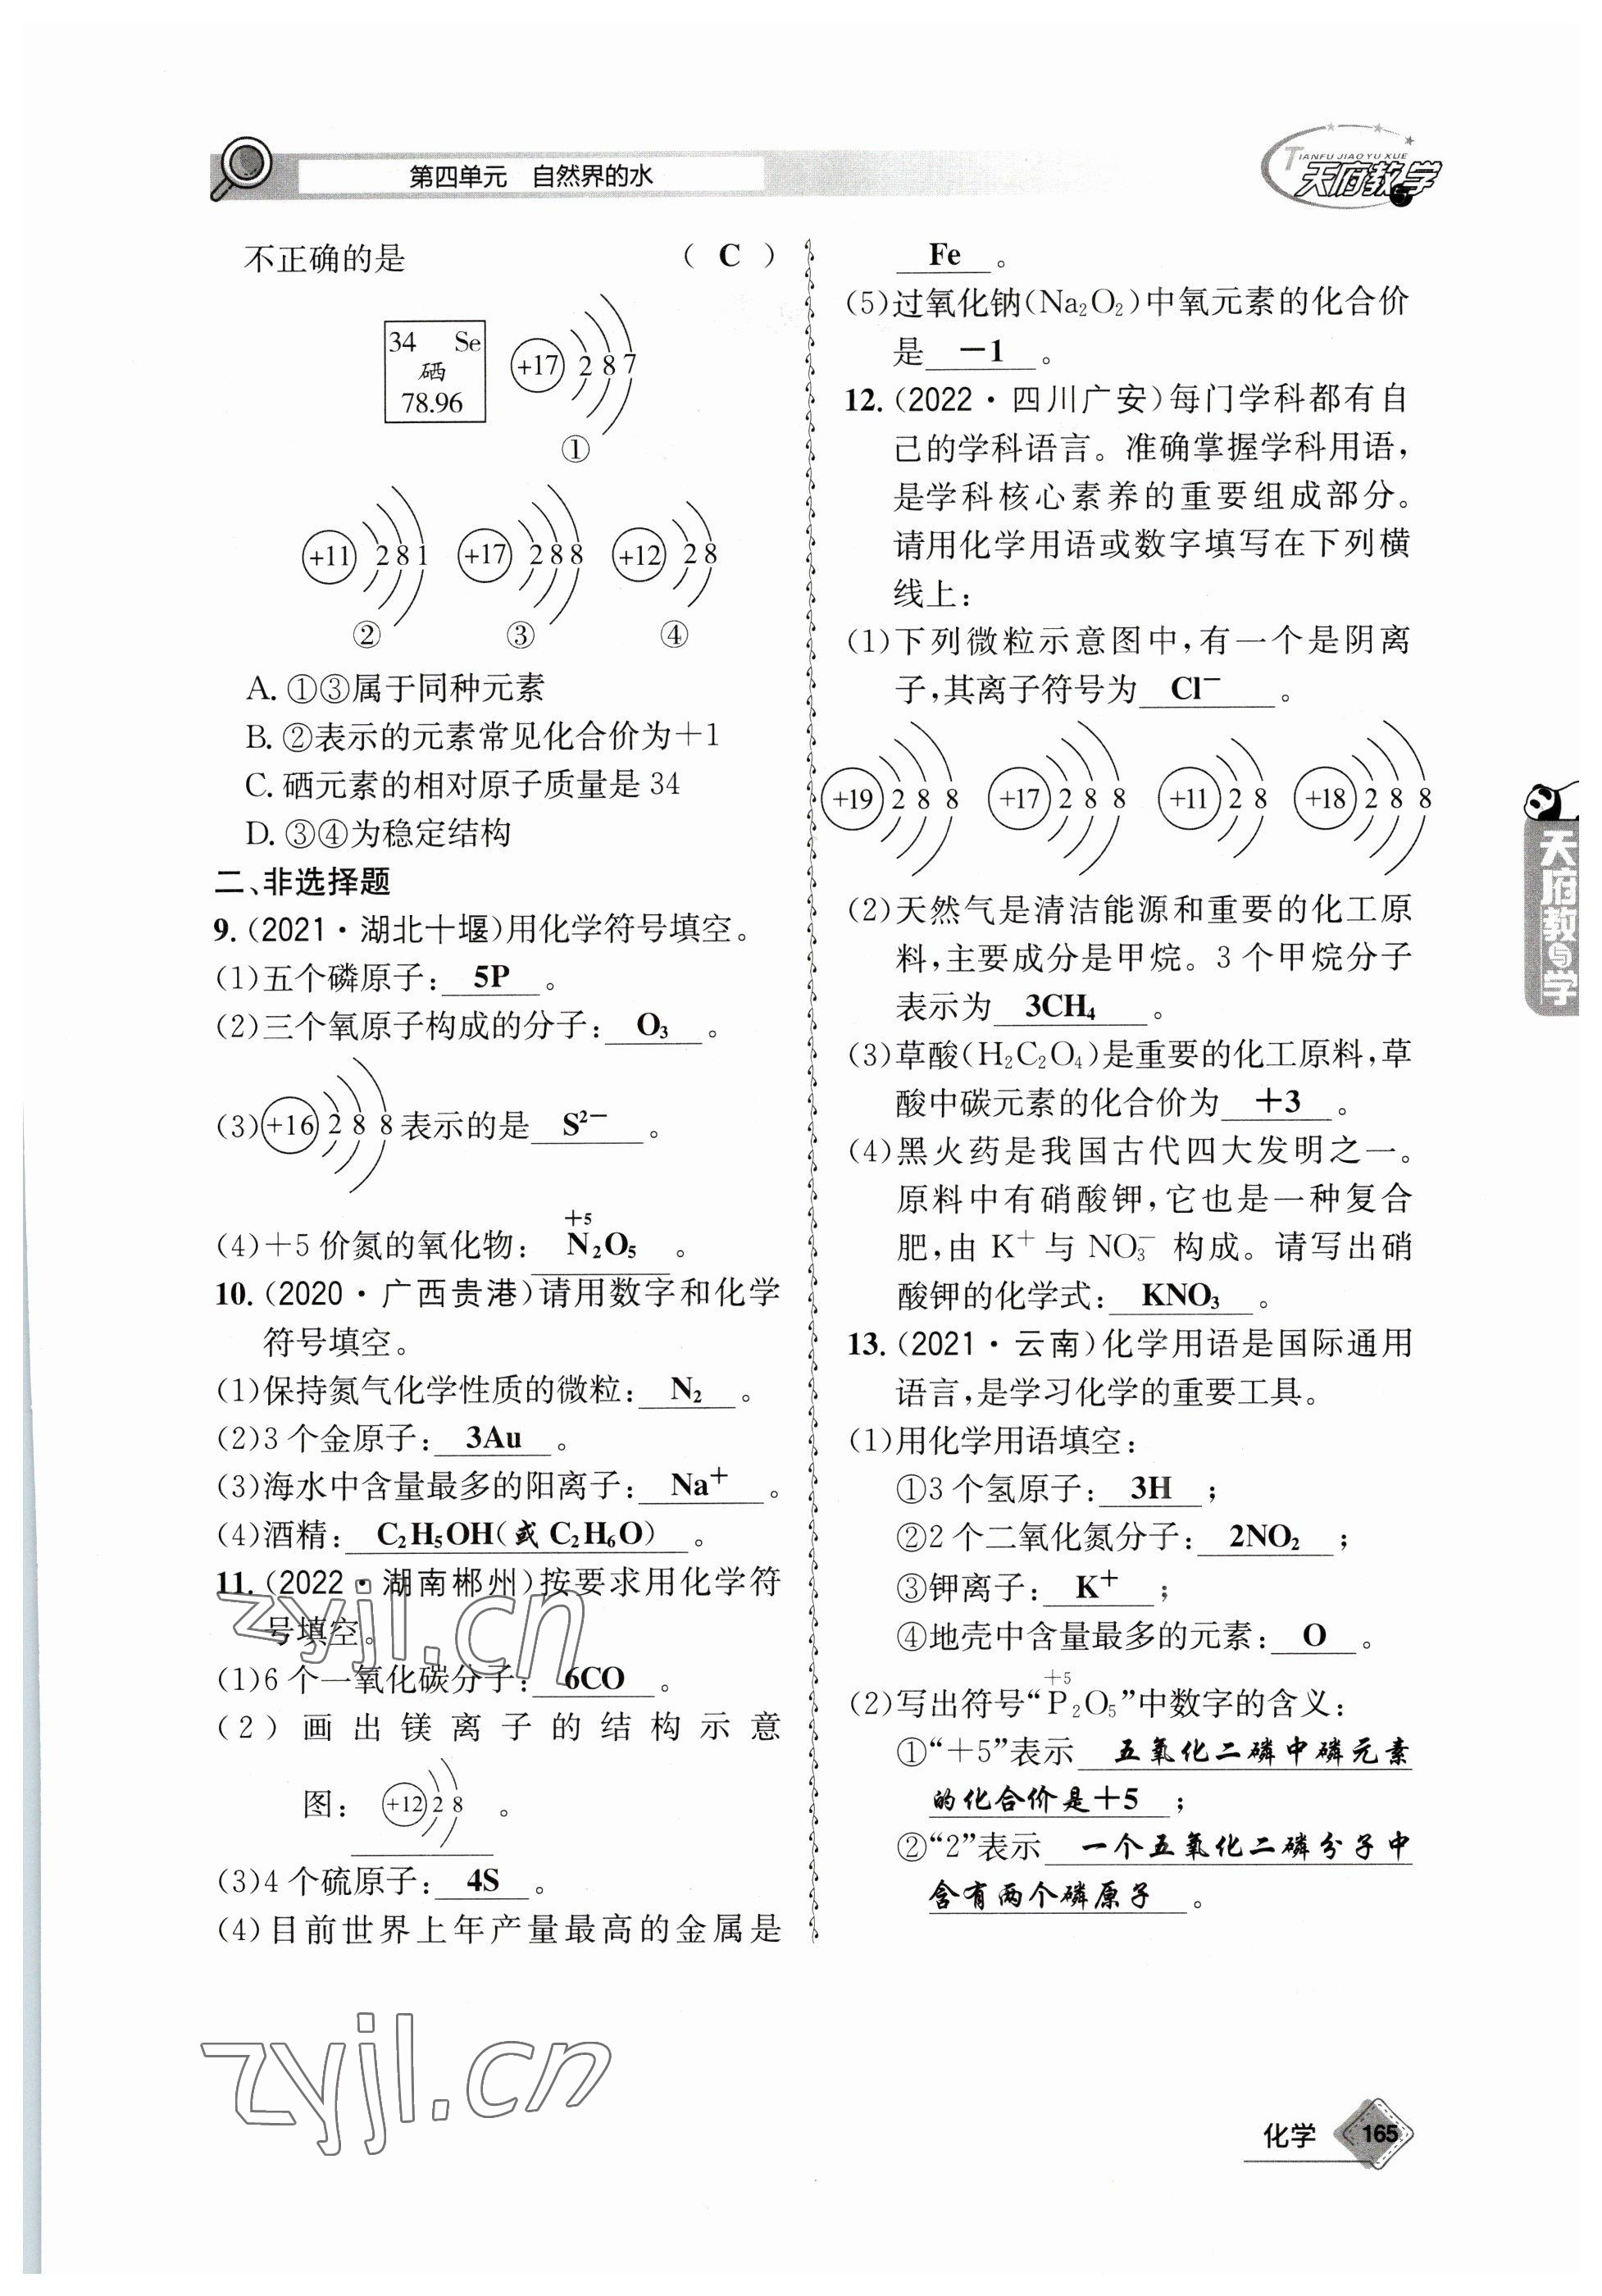 第四单元　自然界的水
TIANFU JIAO YU XUE
天府教与学
不正确的是　（ C ）
34　Se
硒
78.96
+17　2 8 7
①
+11　2 8 1　+17　2 8 8　+12　2 8
②　③　④
A. ①③属于同种元素
B. ②表示的元素常见化合价为+1
C. 硒元素的相对原子质量是 34
D. ③④为稳定结构
二、非选择题
9.（2021·湖北十堰）用化学符号填空。
(1)五个磷原子：5P。
(2)三个氧原子构成的分子：O₃。
(3)+16　2 8 8 表示的是 S²⁻。
+5
(4)+5 价氮的氧化物：N₂O₅。
10.（2020·广西贵港）请用数字和化学
符号填空。
(1)保持氮气化学性质的微粒：N₂。
(2)3 个金原子：3Au。
(3)海水中含量最多的阳离子：Na⁺。
(4)酒精：C₂H₅OH(或 C₂H₆O)。
11.（2022·湖南郴州）按要求用化学符
号填空。
(1)6 个一氧化碳分子：6CO。
(2)画出镁离子的结构示意
图：+12　2 8。
(3)4 个硫原子：4S。
(4)目前世界上年产量最高的金属是
Fe。
(5)过氧化钠(Na₂O₂)中氧元素的化合价
是 −1。
12.（2022·四川广安）每门学科都有自
己的学科语言。准确掌握学科用语，
是学科核心素养的重要组成部分。
请用化学用语或数字填写在下列横
线上：
(1)下列微粒示意图中，有一个是阴离
子，其离子符号为 Cl⁻。
+19　2 8 8　+17　2 8 8　+11　2 8　+18　2 8 8
(2)天然气是清洁能源和重要的化工原
料，主要成分是甲烷。3 个甲烷分子
表示为 3CH₄。
(3)草酸(H₂C₂O₄)是重要的化工原料，草
酸中碳元素的化合价为 +3。
(4)黑火药是我国古代四大发明之一。
原料中有硝酸钾，它也是一种复合
肥，由 K⁺ 与 NO₃⁻ 构成。请写出硝
酸钾的化学式：KNO₃。
13.（2021·云南）化学用语是国际通用
语言，是学习化学的重要工具。
(1)用化学用语填空：
①3 个氢原子：3H；
②2 个二氧化氮分子：2NO₂；
③钾离子：K⁺；
④地壳中含量最多的元素：O。
+5
(2)写出符号“P₂O₅”中数字的含义：
①“+5”表示 五氧化二磷中磷元素
的化合价是+5；
②“2”表示 一个五氧化二磷分子中
含有两个磷原子。
天府教与学
zyjl.cn
zyjl.cn
化学　165